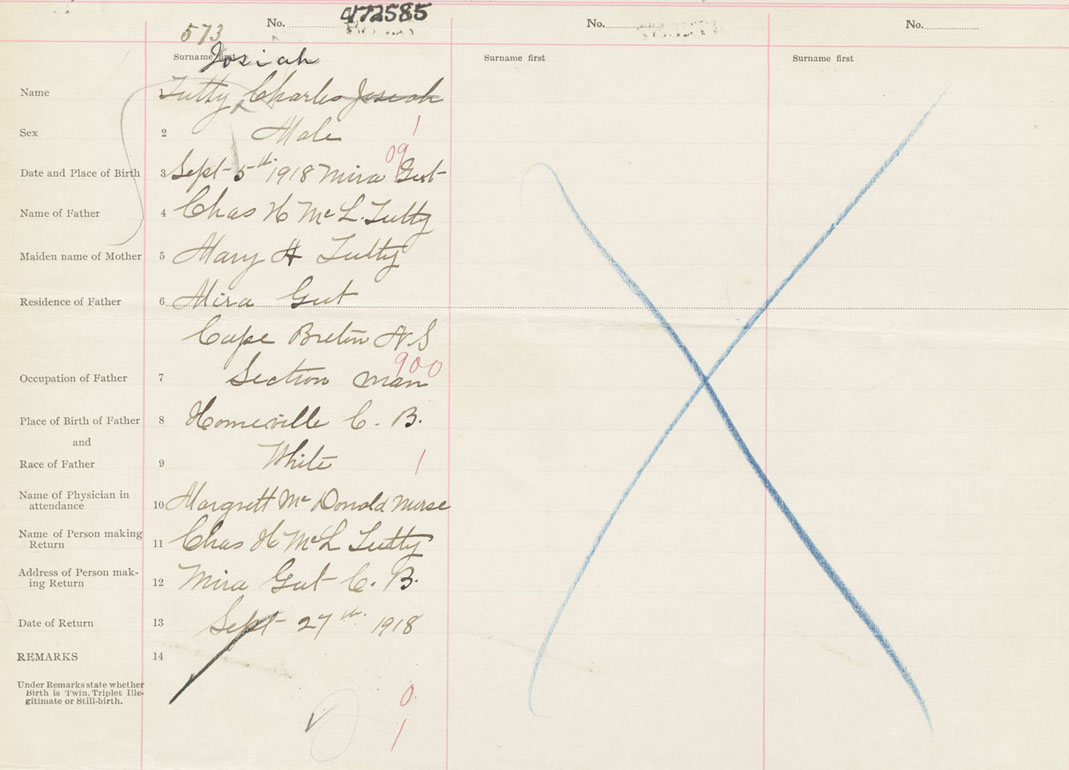 573 No. 472585 No. No.
Josiah
Surname first Surname first Surname first
Name 1 Tutty Charles Josiah
Sex 2 Male 1
09
Date and Place of Birth 3 Sept 5th 1918 Mira Gut
Name of Father 4 Chas H McL. Tutty
Maiden name of Mother 5 Mary H Tutty
Residence of Father 6 Mira Gut
Cape Breton N S
900
Occupation of Father 7 Section man
Place of Birth of Father 8 Homeville C. B.
and
Race of Father 9 White 1
Name of Physician in
attendance 10 Margrett Mc Donald Nurse
Name of Person making
Return 11 Chas H McL Tutty
Address of Person mak-
ing Return 12 Mira Gut C. B.
Date of Return 13 Sept 27th 1918
REMARKS 14
Under Remarks state whether
Birth is Twin, Triplet Ille-
gitimate or Still-birth.
0
1